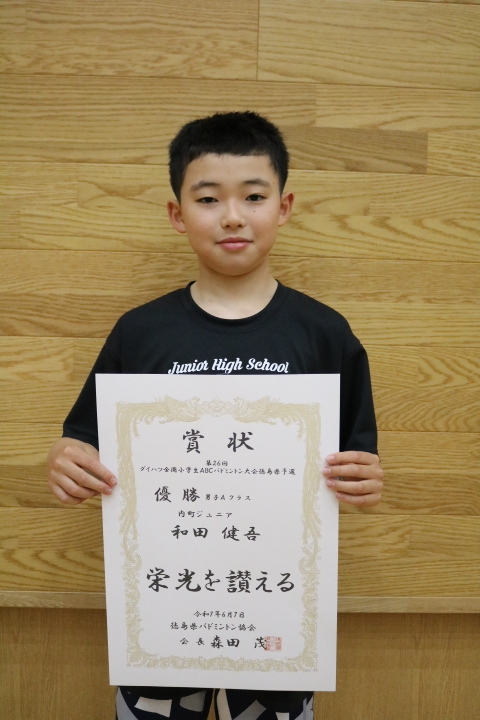 Junior High School
賞状
第26回
ダイハツ全国小学生ABCバドミントン大会徳島県予選
優勝 男子Aクラス
内町ジュニア
和田 健吾
栄光を讃える
令和7年6月7日
徳島県バドミントン協会
会長 森田 茂